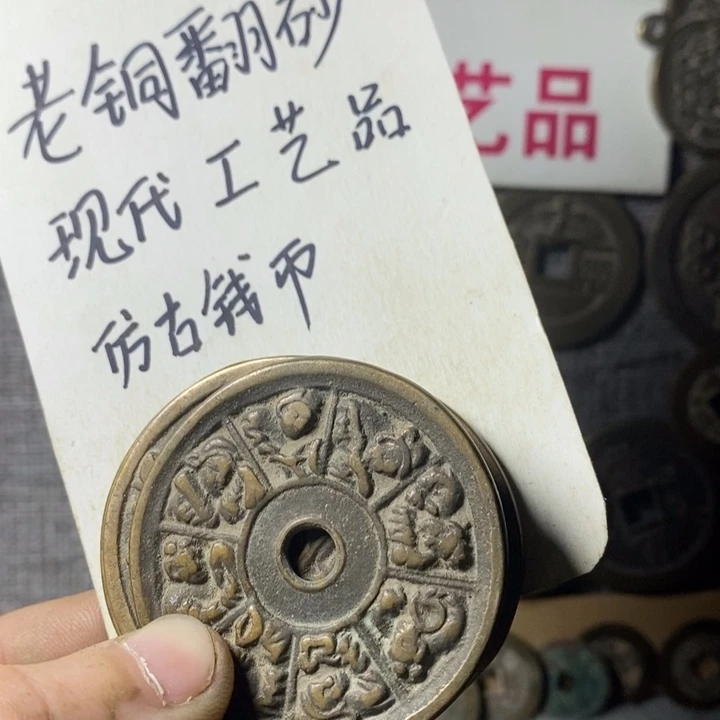 老铜翻砂
现代工艺品
仿古钱币
艺品